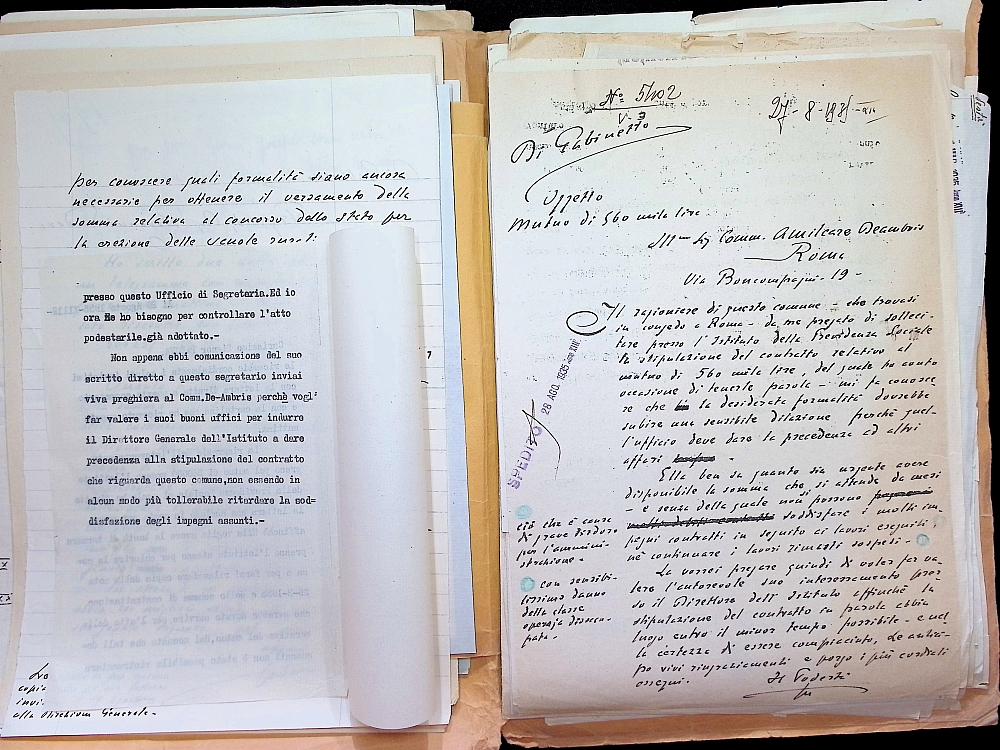 per conoscere quali formalità siano ancora
necessarie per ottenere il versamento della
somma relativa al concorso dello stato per
la erezione delle scuole rurali:
presso questo Ufficio di Segretaria.Ed io
ora Ne ho bisogno per controllare l'atto
podestarile.già adottato.-
Non appena ebbi comunicazione del suo
scritto diretto a questo segretario inviai
viva preghiera al Comm.De-Ambris perchè vogl'
far valere i suoi buoni uffici per indurre
il Direttore Generale dell'Istituto a dare
precedenza alla stipulazione del contratto
che riguarda questo comune,non essendo in
alcun modo più tollerabile ritardare la sod=
disfazione degli impegni assunti.-
copia
invi.
alla Direzione Generale.-
N° 5402
27-8-1935-XIII
Di Gabinetto
Oggetto
Mutuo di 560 mila lire
Ill.mo Sig. Comm. Amilcare Deambris
Roma
Via Boncompagni-19-
Il ragioniere di questo comune - che trovasi
in congedo a Roma - da me pregato di solleci-
tare presso l'Istituto della Previdenza Sociale
la stipulazione del contratto relativo al
mutuo di 560 mila lire, del quale ho avuto
occasione di tenerle parola - mi fa conosce
re che la desiderata formalità dovrebbe
subire una sensibile dilazione perchè quel-
l'ufficio deve dare la precedenza ad altri
affari
SPEDITO 28 AGO. 1935 Anno XIII
Ella ben sa quanto sia urgente avere
disponibile la somma che si attende da mesi
- e senza della quale non possono
soddisfare i molti im-
pegni contratti in seguito ai lavori eseguiti,
nè continuare i lavori rimasti sospesi -
ciò che è causa
di grave disdoro
per l'ammini-
strazione -
con sensibi-
lissimo danno
della classe
operaja disoccu-
pata -
La vorrei pregare quindi di voler far va-
lere l'autorevole suo interessamento pres-
so il Direttore dell'Istituto affinchè la
stipulazione del contratto in parola abbia
luogo entro il minor tempo possibile - e nel
la certezza di essere compiaciuto, Le antici-
po vivi ringraziamenti e porgo i più cordiali
ossequi.
Il Podestà